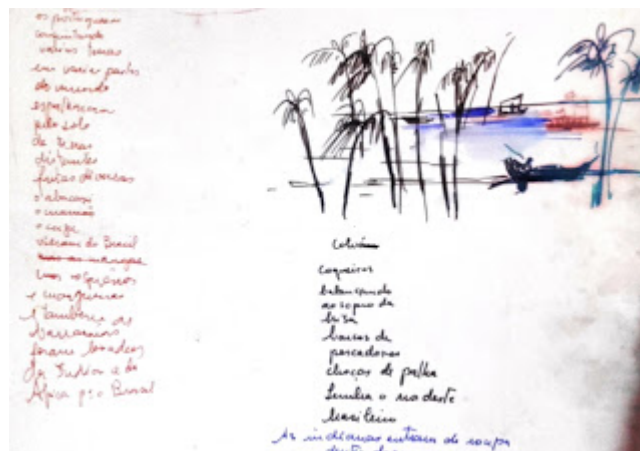 os portugueses
conquistando
várias terras
em várias partes
do mundo
espalharam
pelo solo
de terras
distantes
frutas diversas
o abacaxi
o mamão
o caju
vieram do Brasil
mas os coqueiros
e mangueiras
e também as
bananeiras
foram levadas
da Índia e da
África p.o Brasil
coqueiros
balançando
ao sopro da
brisa
barcos de
pescadores
choças de palha
lembra o nordeste
brasileiro
As indianas entram de roupa